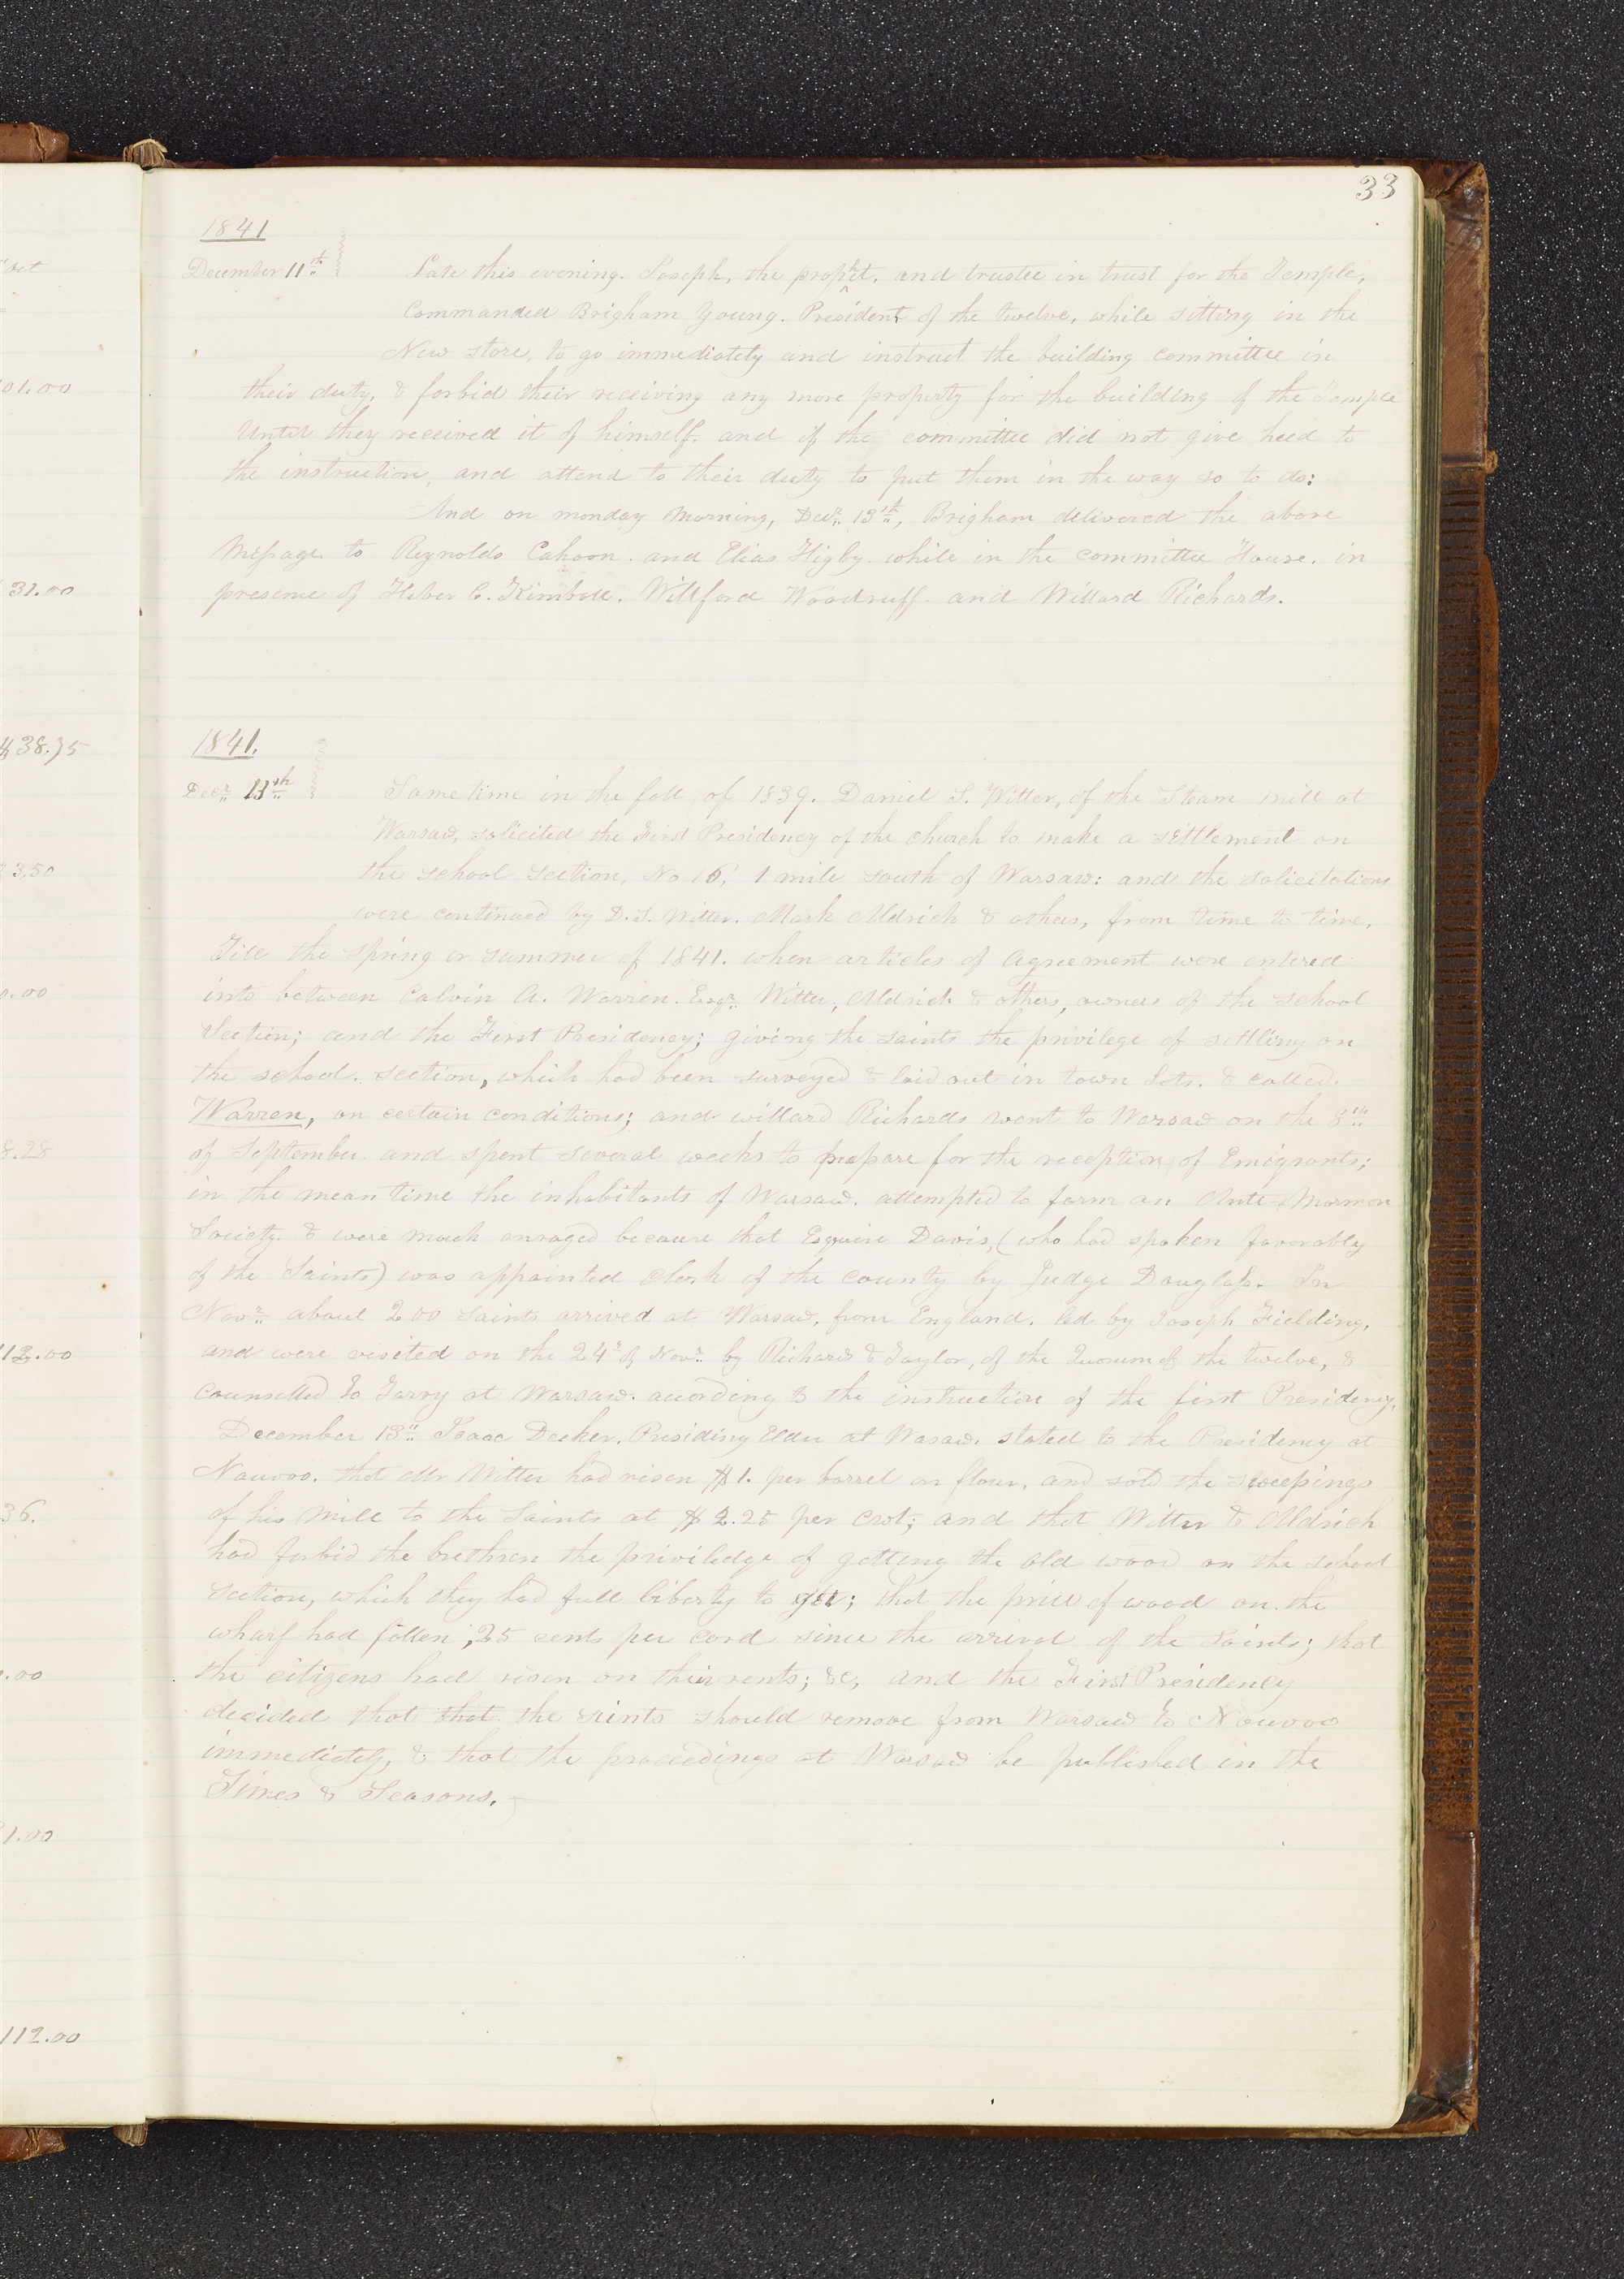 33
1841
December 11th Late this evening. Joseph, the prophet, and trustee in trust for the Temple,
Commanded Brigham Young. President of the twelve, while sitting in the
New store, to go immediately and instruct the building committee in
their duty, & forbid their receiving any more property for the building of the Temple
Until they received it of himself. and if the committee did not give heed to
the instruction, and attend to their duty to put them in the way so to do:
And on monday morning, Decr. 13th, Brigham delivered the above
Message to Reynolds Cahoon. and Elias Higby. while in the committee House. in
presence of Heber C. Kimball. Willford Woodruff. and Willard Richards.
1841.
Decr 13th Sometime in the fall of 1839. Daniel S. Witter, of the Steam mill at
Warsaw, solicited the First Presidency of the church to make a settlement on
the school section, No 16, 1 mile south of Warsaw: and the solicitations
were continued by D. S. Witter. Mark Aldrich & others, from time to time,
Till the spring or summer of 1841. when articles of agreement were entered
into between Calvin A. Warren. Esqr. Witter, Aldrich & others, owners of the school
Section; and the First Presidency; giving the saints the privilege of settling on
the school. section, which had been surveyed & laid out in town lots. & called.
Warren, on certain conditions; and willard Richards went to Warsaw on the 8th
of September. and spent several weeks to prepare for the reception of Emigrants;
in the mean time the inhabitants of Warsaw. attempted to form an Anti-Mormon
Society. & were much enraged because that Esquire Davis, (who had spoken favorably
of the Saints) was appointed Clerk of the county by Judge Douglass. In
Novr. about 200 Saints arrived at Warsaw, from England. led by Joseph Fielding,
and were visited on the 24th of Novr. by Richards & Taylor, of the Quorum of the twelve, &
counselled to Tarry at Warsaw. according to the instruction of the first Presidency,
December 13th Isaac Decker. Presiding Elder at Wasaw. stated to the Presidency at
Nauvoo. that Mr Witter had risen $1. per barrel on flour, and sold the sweepings
of his mill to the Saints at $2.25 per cwt; and that Witter & Aldrich
had forbid the brethren the priviledge of getting the old wood on the school
section, which they had full liberty to get; that the price of wood on. the
wharf had fallen, 25 cents per cord since the arrival of the Saints; that
the citizens had risen on their rents; &c, and the First Presidency
decided that that the saints should remove from Warsaw to Nauvoo
immediately, & that the proceedings at Warsaw be published in the
Times & Seasons.
01.00
31.00
$38.75
3.50
0.00
8.28
112.00
36.
.00
1.00
112.00